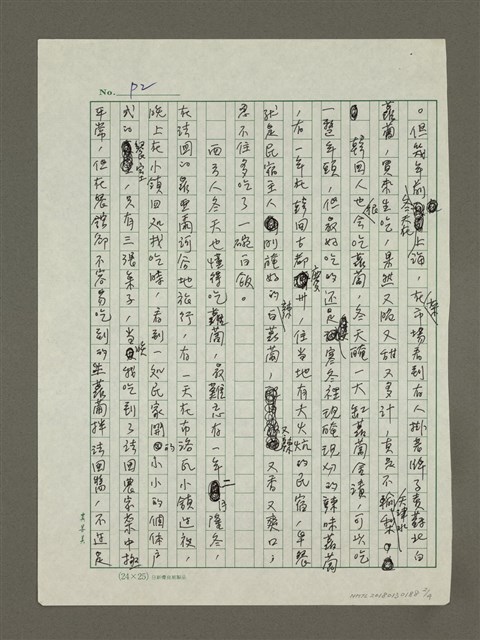 No. P2
。但幾年前冬天在上海，在菜市場看到有人掛著牌子賣蘇北白
蘿蔔，買來生吃，果然又脆又甜又多汁，真是不輸天津水梨。
韓國人也很會吃蘿蔔，冬天醃一大缸蘿蔔過漬，可以吃
一整年頭，但最好吃的還是寒冬裡現醃現切的辣味蘿蔔
，有一年在韓國古都慶州，住當地有大火炕的民宿，早餐
就是民宿主人剛醃好的白辣蘿蔔，又辣又香又爽口，
忍不住多吃了一碗白飯。
西方人冬天也懂得吃蘿蔔，最難忘有一年二月隆冬，
在法國的最里昂訶谷地旅行，有一天在布洛瓦小鎮過夜，
晚上在小鎮四處找吃時，看到一如民家開的小小的個體戶
式的餐室，只有三張桌子，當晚我吃到了法國農家菜中極
平常，但在餐館卻不容易吃到的生蘿蔔拌法國醬，不過是
(24×25)